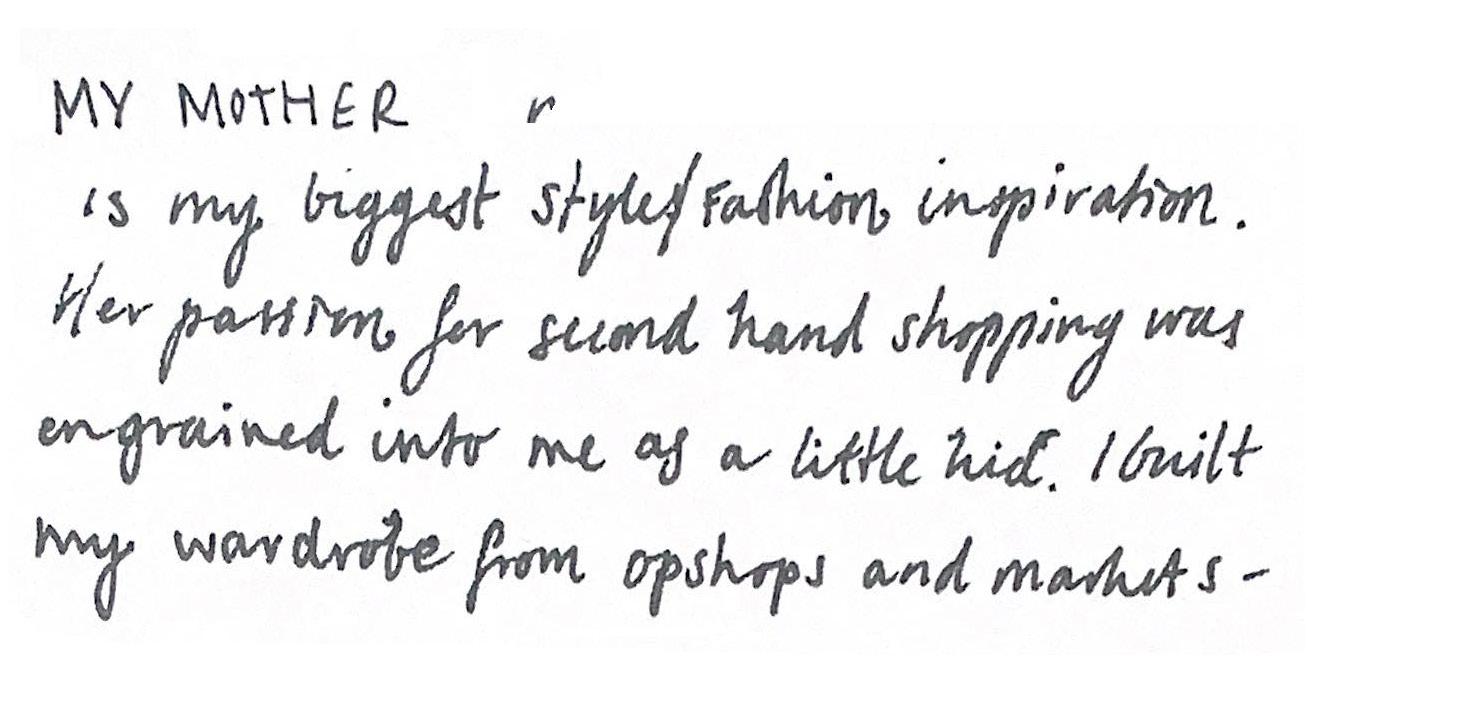 MY MOTHER
is my biggest style/Fashion inspiration.
Her passion for second hand shopping was
engrained into me as a little kid. I built
my wardrobe from opshops and markets-